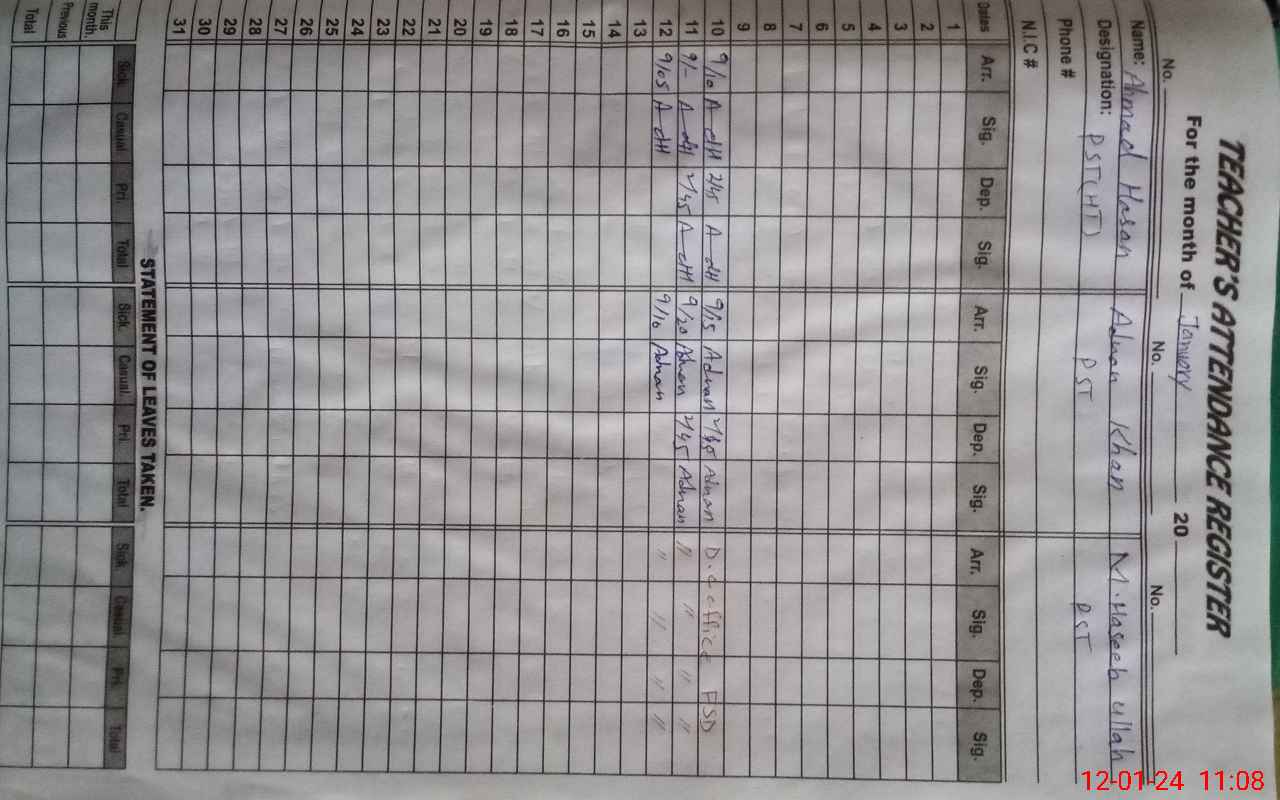 TEACHER'S ATTENDANCE REGISTER
For the month of January 20
No. No. No.
Name: Ahmad Hasan Adnan Khan M. Haseeb ullah
Designation: PST(HT) PST PST
Phone #
N.I.C #
Dates Arr. Sig. Dep. Sig. Arr. Sig. Dep. Sig. Arr. Sig. Dep. Sig.
1
2
3
4
5
6
7
8
9
10 9/10 A-dH 2/45 A-dH 9/15 Adnan 2/45 Adnan D.C office FSD
11 9/- A-dH 2/45 A-dH 9/20 Adnan 2/45 Adnan " " " "
12 9/05 A-dH 9/10 Adnan " " " "
13
14
15
16
17
18
19
20
21
22
23
24
25
26
27
28
29
30
31
STATEMENT OF LEAVES TAKEN.
Sick Casual Pri. Total Sick Casual. Pri. Total Sick Casual Pri. Total
This month.
Previous
Total
12-01-24 11:08